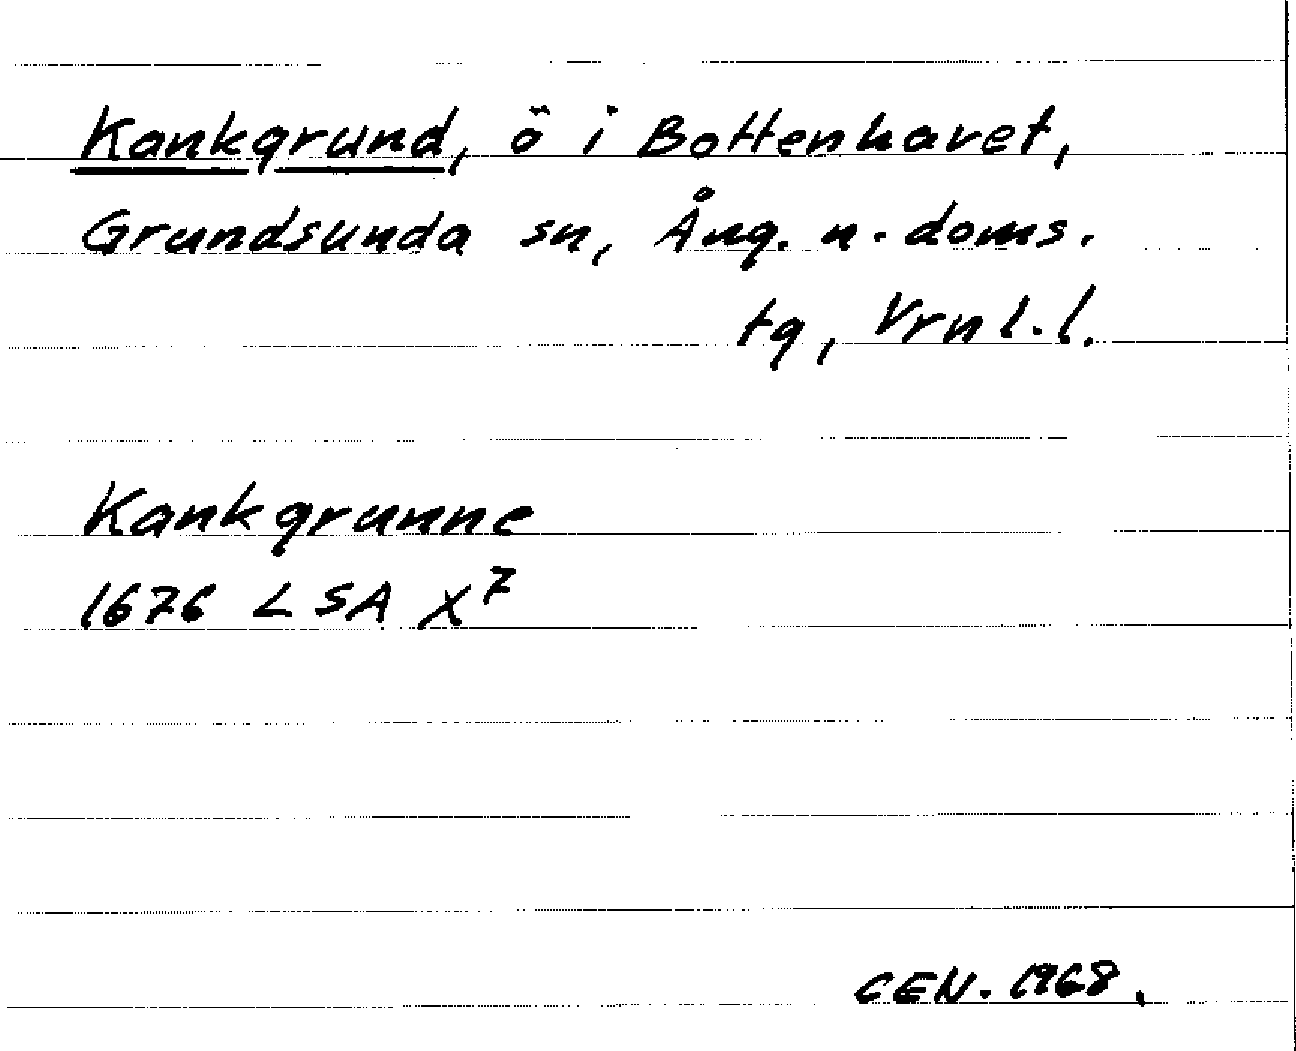 Kankgrund, ö i Bottenhavet,
Grundsunda sn, Ång. n. doms.
tg, Vrnl. l.
Kankgrunne
1676 LSA X⁷
CEN. 1968.